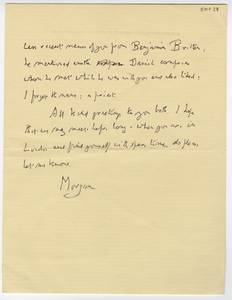 recent news of you from Benjamin Britten,
he mentioned with Daniel
whom he met which he was with you and also liked:
I forget the name: a priest.
All kind greetings to you both. I hope
that we may meet before long – when you are in
London and find yourself with spare time, do please
let me know.
Morgan